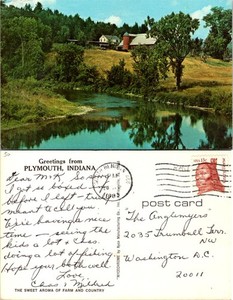 Greetings from
PLYMOUTH, INDIANA
Dear Mr K So sorry
I got so boxed up
before I left - truly
meant to call you.
Erie having a nice
time - seeing the
kids a lot & Chas.
doing a lot of fishing.
Hope your both well
Love,
Chas & Mildred
THE SWEET AROMA OF FARM AND COUNTRY
post card
"The Anglemyers"
2035 Trumbull Terr.
NW
Washington D.C.
20011